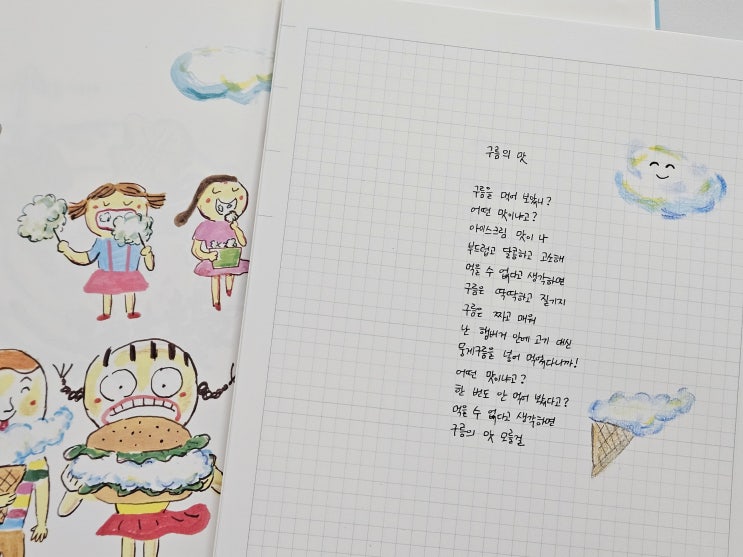 구름의 맛
구름을 먹어 보았니?
어떤 맛이냐고?
아이스크림 맛이 나
부드럽고 달콤하고 고소해
먹을 수 없다고 생각하면
구름은 딱딱하고 질기지
구름은 짜고 매워
난 햄버거 안에 고기 대신
뭉게구름을 넣어 먹었다니까!
어떤 맛이냐고?
한 번도 안 먹어 봤다고?
먹을 수 없다고 생각하면
구름의 맛 모를걸